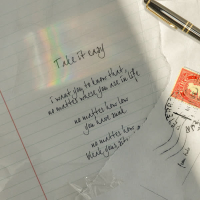 Take it easy
i want you to know that,
no matter where you are in life
no matter how low
you have sunk
no matter how
bleak your